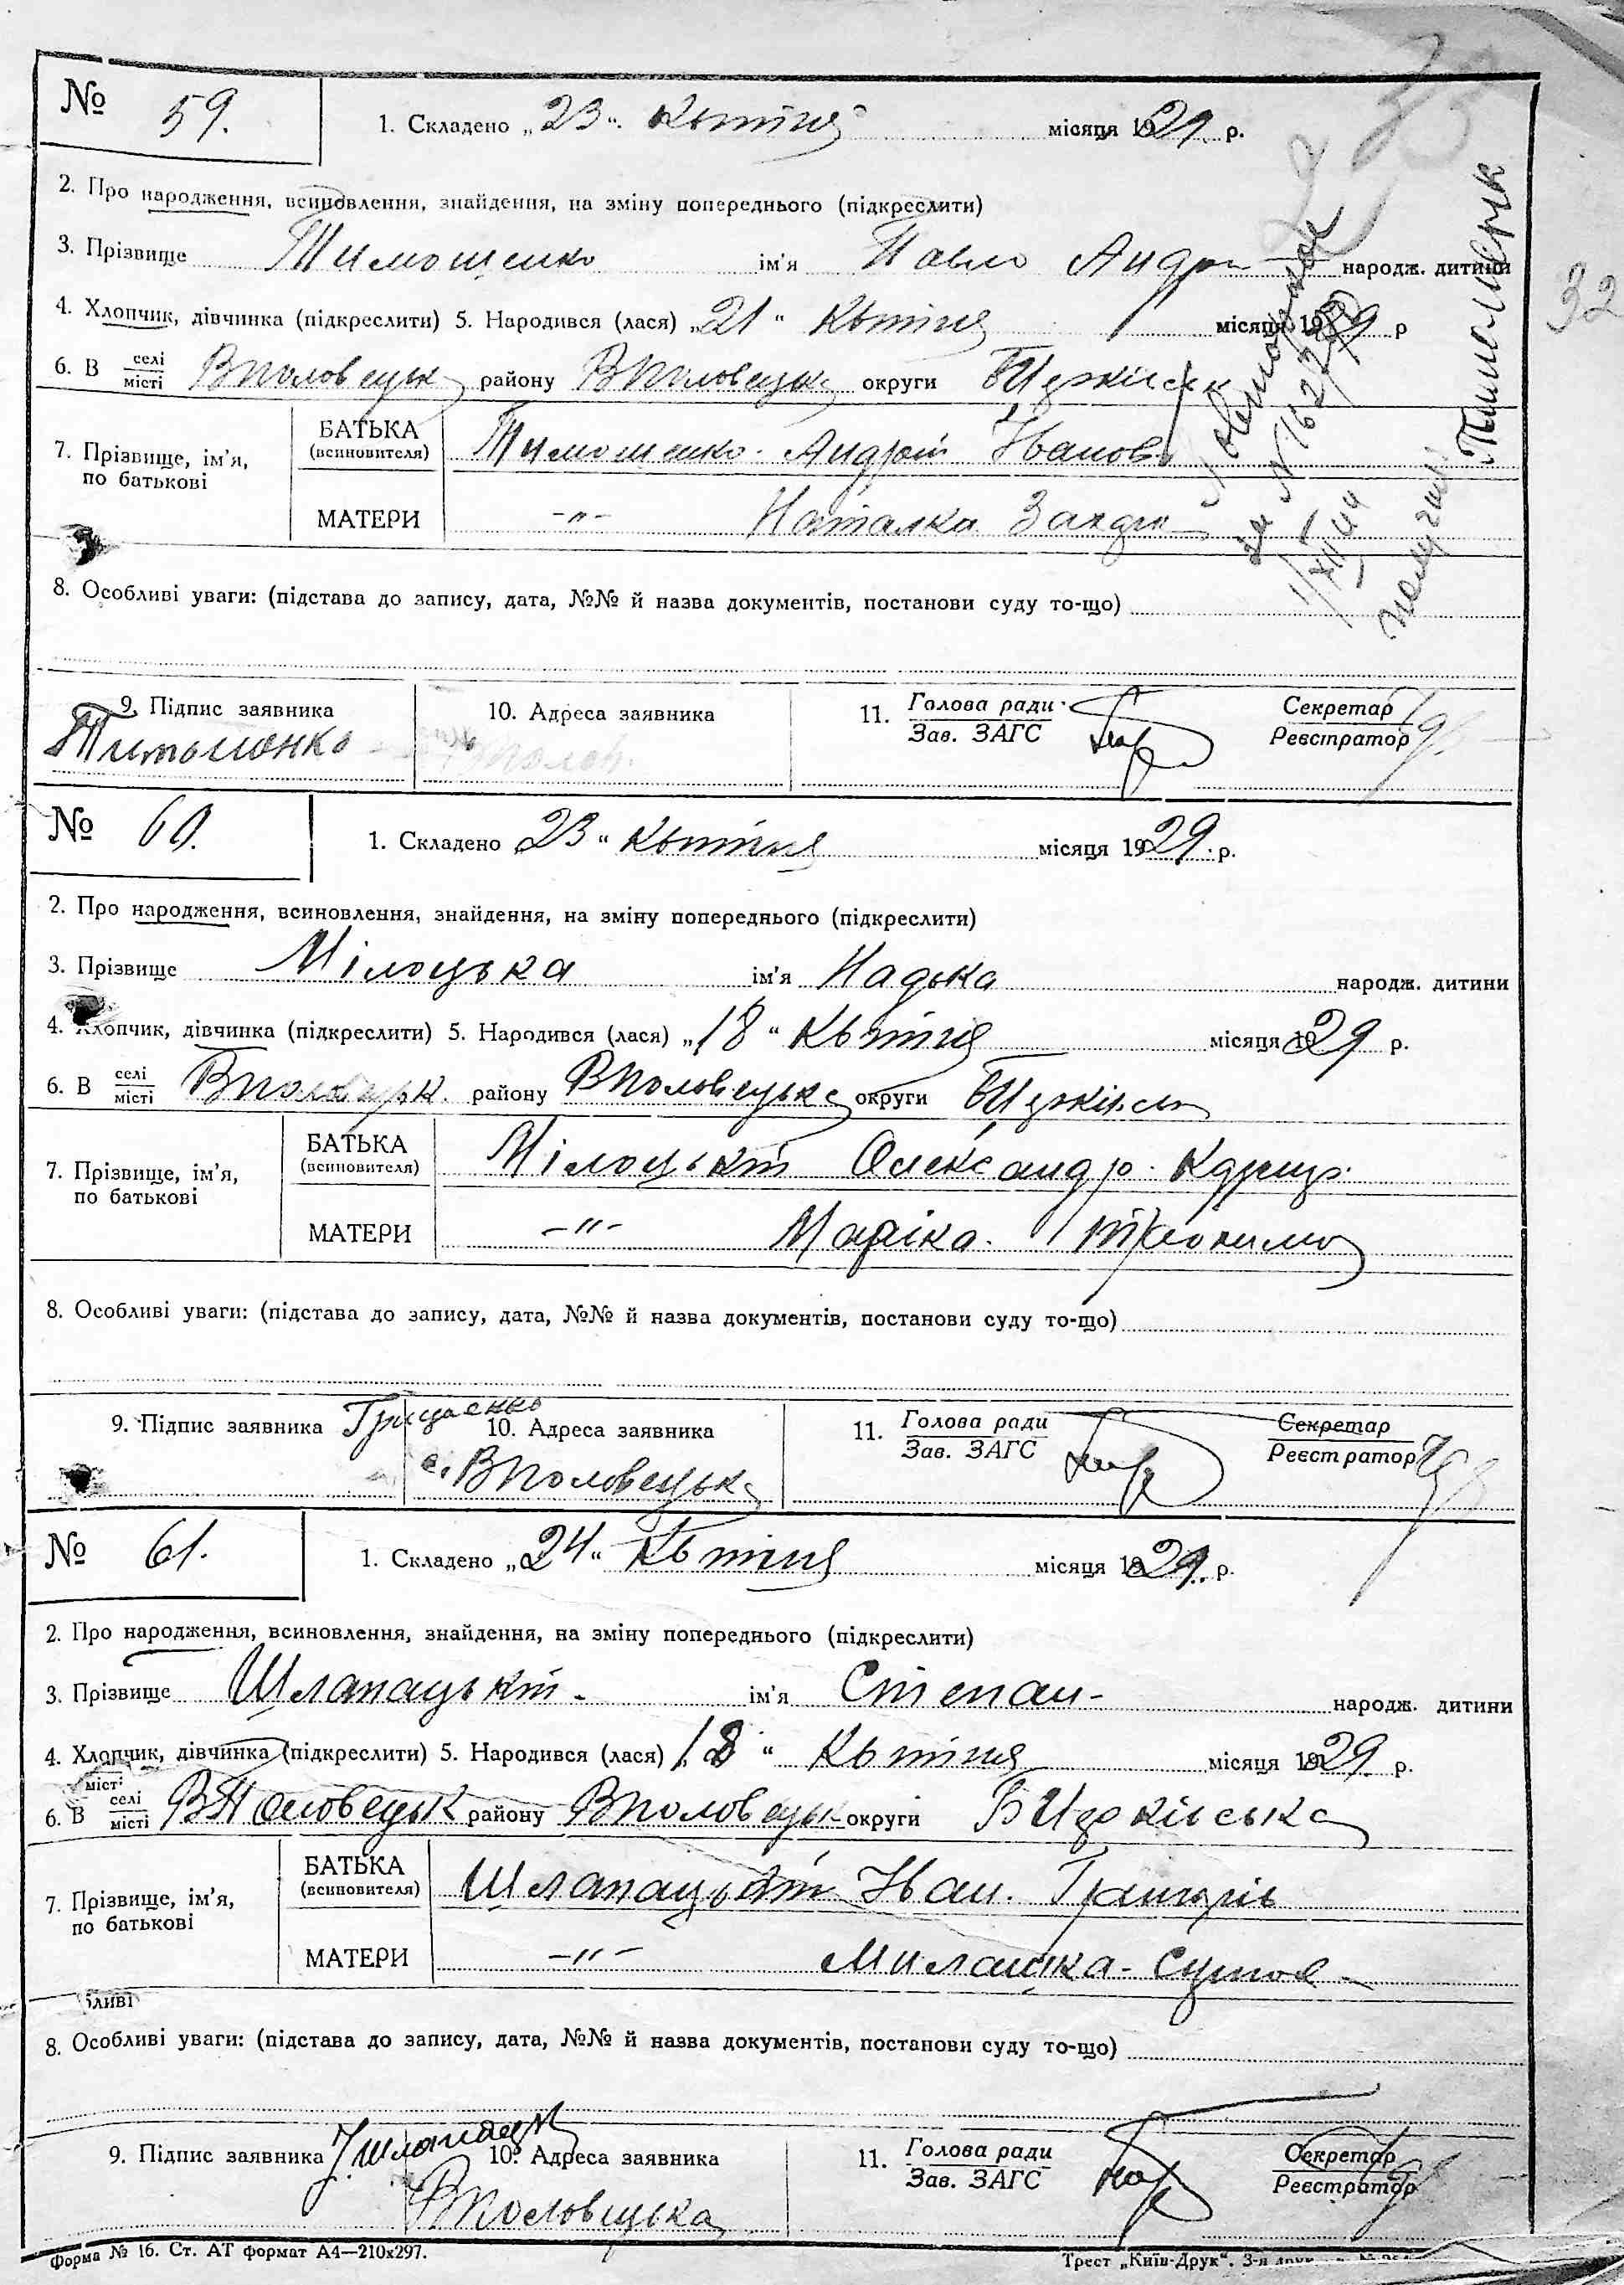 32
№ 59. 1. Складено „23“ Квітня місяця 1929 р.
2. Про народження, всиновлення, знайдення, на зміну попереднього (підкреслити)
3. Прізвище Тимошенко ім'я Павло Андр народж. дитини
4. Хлопчик, дівчинка (підкреслити) 5. Народився (лася) „21“ Квітня місяця 1929 р
6. В селі місті ВПоловецьк району ВПоловецьк округи БЦерківськ
7. Прізвище, ім'я, по батькові
БАТЬКА (всиновителя) Тимошенко Андрій Іванов
МАТЕРИ -"- Наталка
8. Особливі уваги: (підстава до запису, дата, №№ й назва документів, постанови суду то-що)
9. Підпис заявника 10. Адреса заявника 11. Голова ради Зав. ЗАГС Секретар Реєстратор
№ 60. 1. Складено 23“ Квітня місяця 1929 р.
2. Про народження, всиновлення, знайдення, на зміну попереднього (підкреслити)
3. Прізвище Мілоцька ім'я Надька народж. дитини
4. Хлопчик, дівчинка (підкреслити) 5. Народився (лася) „18“ Квітня місяця 1929 р.
6. В селі місті ВПоловецьк. району ВПоловецьке округи БЦерківськ
7. Прізвище, ім'я, по батькові
БАТЬКА (всиновителя) Мілоцький Олександр
МАТЕРИ -"- Маріка.
8. Особливі уваги: (підстава до запису, дата, №№ й назва документів, постанови суду то-що)
9. Підпис заявника Грицаенко 10. Адреса заявника 11. Голова ради Зав. ЗАГС Секретар Реєстратор
с. ВПоловецька
№ 61. 1. Складено „24“ Квітня місяця 1929 р.
2. Про народження, всиновлення, знайдення, на зміну попереднього (підкреслити)
3. Прізвище Шлапацький - ім'я Степан - народж. дитини
4. Хлопчик, дівчинка (підкреслити) 5. Народився (лася) 18“ Квітня місяця 1929 р.
міст
6. В селі місті ВПоловецьк району ВПоловецьк округи БЦерківська
7. Прізвище, ім'я, по батькові
БАТЬКА (всиновителя) Шлапацький Іван. Григорів
МАТЕРИ -"- Милашка -
бливі
8. Особливі уваги: (підстава до запису, дата, №№ й назва документів, постанови суду то-що)
9. Підпис заявника 10. Адреса заявника 11. Голова ради Зав. ЗАГС Секретар Реєстратор
ВПоловецька
Форма № 16. Ст. АТ формат А4—210х297. Трест „Київ-Друк“. 3-я друк